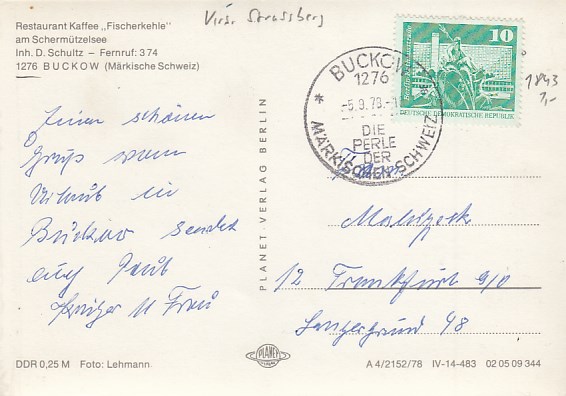 Kreis Strassberg
Restaurant Kaffee „Fischerkehle"
am Schermützelsee
Inh. D. Schultz – Fernruf: 374
1276 BUCKOW (Märkische Schweiz)
10
DEUTSCHE DEMOKRATISCHE REPUBLIK
BUCKOW
1276
-5.9.78.-
DIE
PERLE
DER
MÄRKISCHEN SCHWEIZ
1843
7,-
Einen schönen
Gruß vom
Urlaub in
Buckow sendet
euch
u Frau
Fam
12 Frankfurt g/O
48
PLANET VERLAG BERLIN
PLANET
DDR 0,25 M Foto: Lehmann
A 4/2152/78 IV-14-483 02 05 09 344